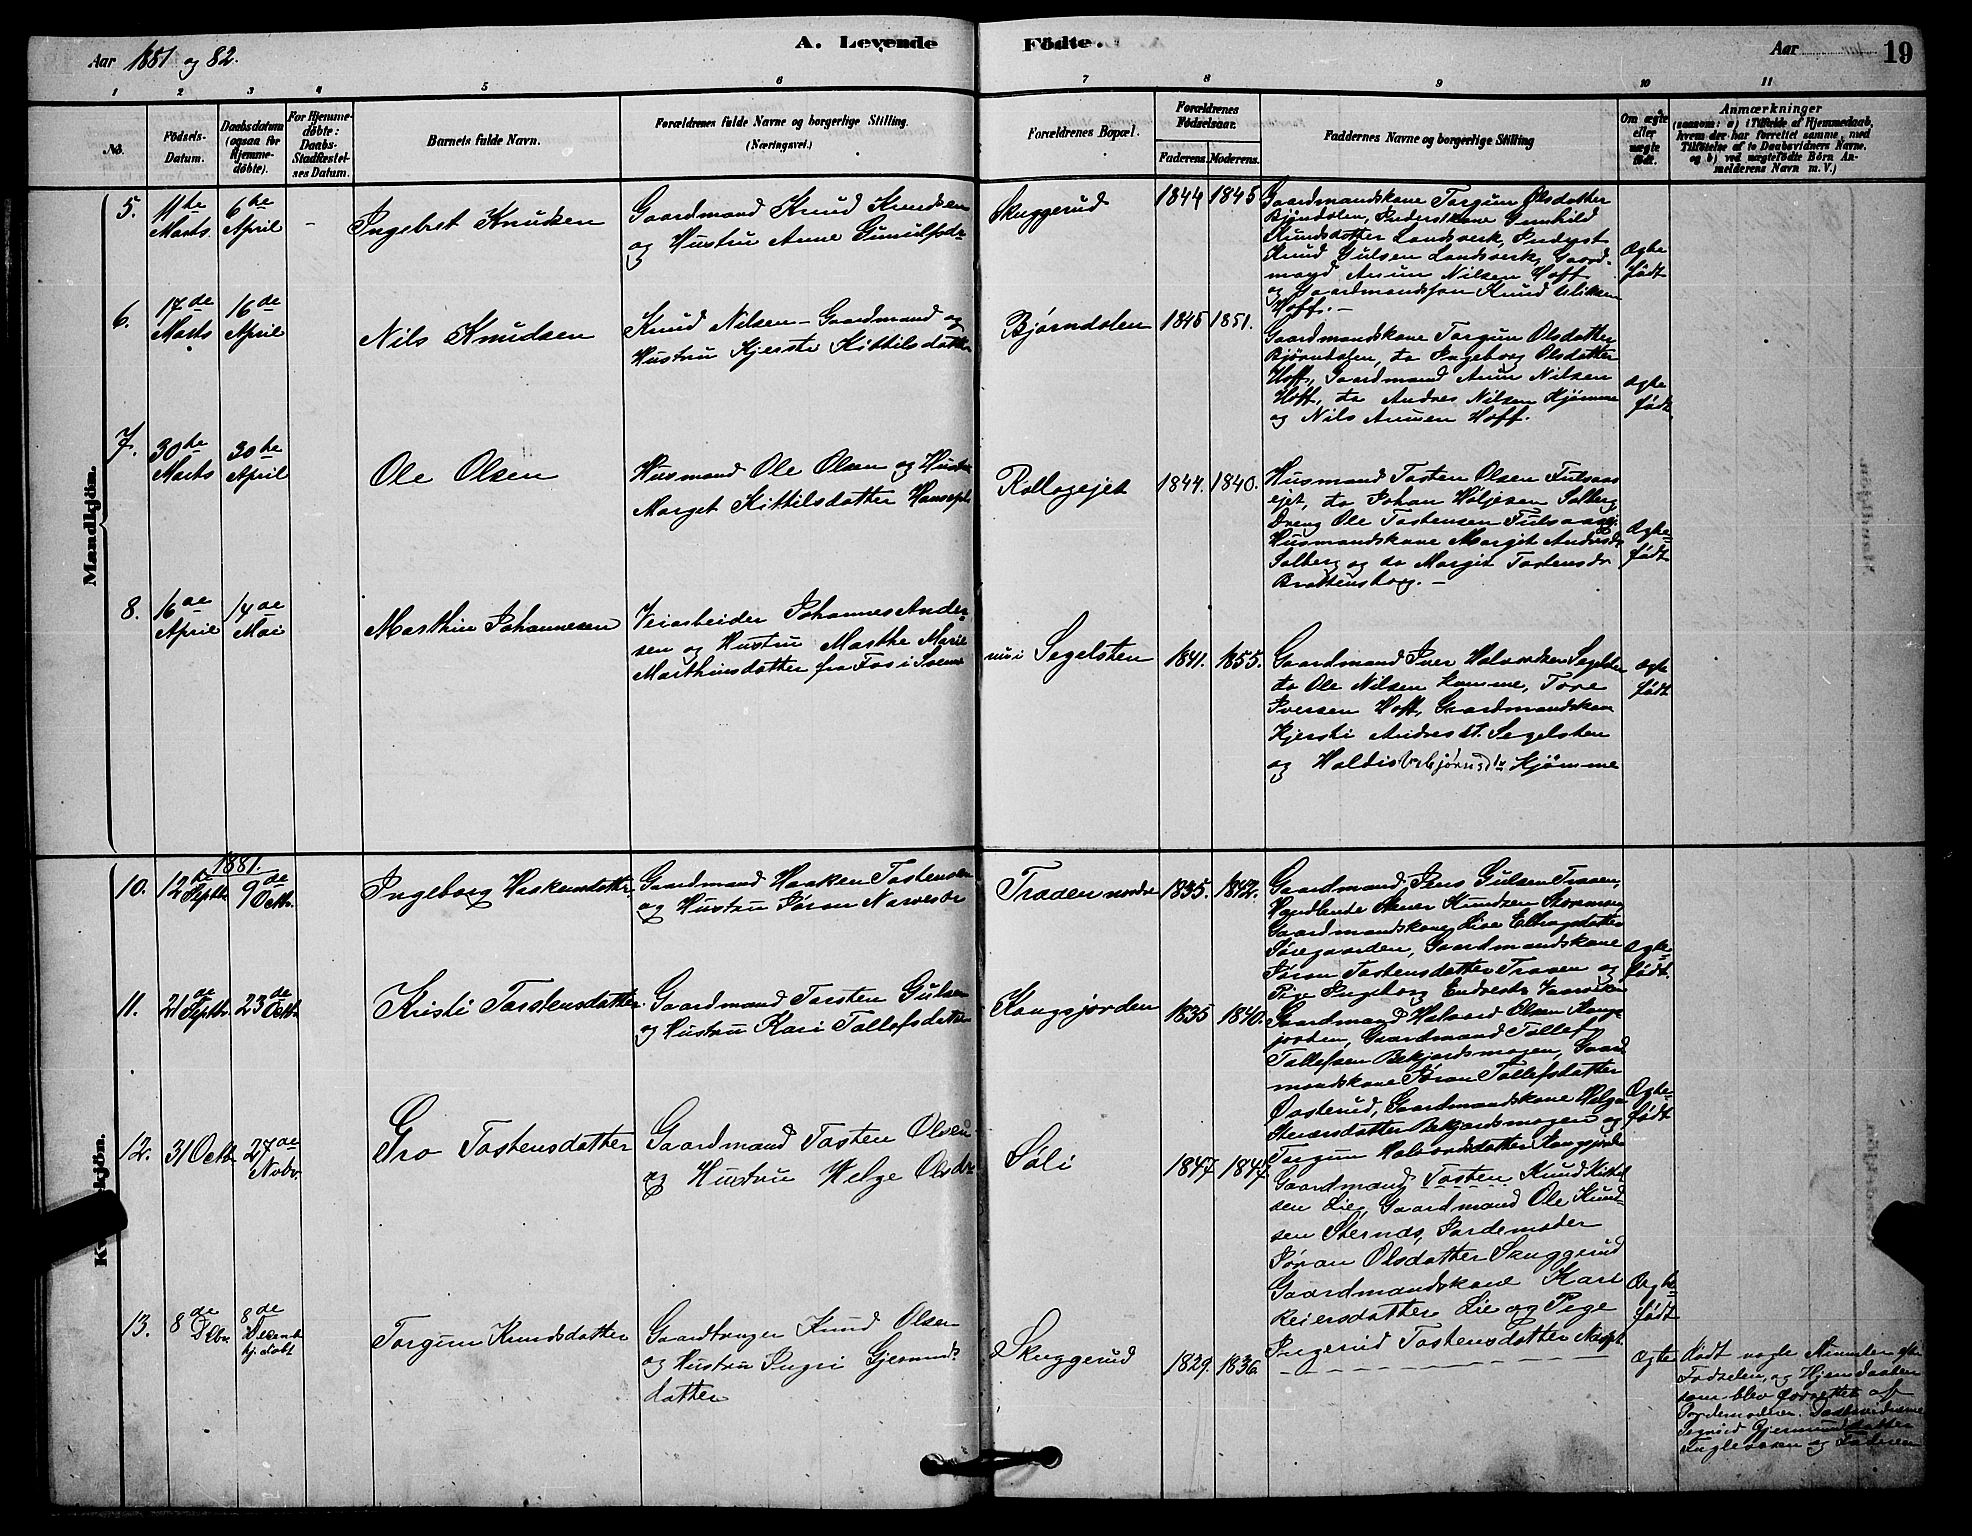 Aar 1881 og 82.
A. Levende Födte.
Aar 19
1 2 3 4 5 6 7 8 9 10 11
No.
Födsels-Datum.
Daabsdatum (ogsaa for Hjemme-döbte).
For Hjemme-döbte: Daabs-Stadfæstel-ses Datum.
Barnets fulde Navn.
Forældrenes fulde Navne og borgerlige Stilling. (Næringsvei.)
Forældrenes Bopæl.
Forældrenes Födselsaar.
Faderens. Moderens.
Faddernes Navne og borgerlige Stilling
Om ægte eller uægte födt.
Anmærkninger
(saasom: a) i Tilfælde af Hjemmedaab,
hvem der har forrettet samme, med
Tilföielse af to Daabsvidners Navne,
og b) ved uægtefödte Börn An-
melderens Navn m. V.)
Mandkjön.
5. 11te Marts. 6te April -
Ingebret Knudsen
Gaardmand Knud Knudsen
og Hustru Anne Gunulfsdr
Skuggerud
1844 1845
Gaardmandskone Torgun Olsdatter
Bjøndalen, Inderstkone Gunhild
Knudsdatter Landsverk, Inderst
Knud Gulsen Landsverk, Gaard-
mand Anun Nilsen Hoff
og Gaardmandssøn Knud
Hoff. -
Ægte født
6. 17de Marts 16de April
Nils Knudsen
Knud Nilsen - Gaardmand og
Hustru Kjersti Kittilsdatter
Bjørndalen
1845 1851.
Gaardmandskone Torgun Olsdatter
Bjørndalen, do Ingeborg Olsdatter
Hoff, Gaardmand Anun Nilsen
Hoff, do Andres Nilsen Kjømme
og Nils Anunsen Hoff.
ægte født
7. 30te Marts 30te April
Ole Olsen
Husmand Ole Olsen og Hustru
Marget Kittilsdatter
Rollagejet
1844. 1840.
Husmand Tosten Olsen Fulsaas
ejet, do Johan Holjesen Solberg
Dreng Ole Tostensen Fulsaasej.
Husmandskone Margit Andersdr
Solberg og do Margit Tostensdr
Brottenshog. -
Ægte født
8. 16de April 14de Mai
Marthin Johannesen
Veiarbeider Johannes Ander-
sen og Hustru Marthe Marie
Marthinsdatter fra Fos i
nu i Segelsten
1841. 1855.
Gaardmand Iver Halvordsen Segelsten
do Ole Nilsen Kømme, Tore
Iversen Hoff, Gaardmandskone
Kjersti Andresdt. Segelsten
og Haldis Vebjørnsdtr Kjømme
ægte født
Kv kjön.
1881.
10. 12te Septbr 9de Octbr.
Ingeborg Haakensdatter
Gaardmand Haaken Tostensen
og Hustru Jøran Narvesdr
Traaen nordre
1835. 1842.
Gaardmand Jens Gulsen Traaen,
Handlende Stener Knudsen
Gaardmandskone Live Elbragsdatter
Søregaarden, Gaardmandskone
Jøran Tostensdatter Traaen og
Pige Ingeborg Endresdr
ægte født.
11. 21de Septbr. 23de Octbr
Kristi Torstensdatter.
Gaardmand Torsten Gulsen
og Hustru Kari Tollefsdatter
Kongsjorden
1835 1840.
Gaardmand Halvord Olsen Kongs-
jorden, Gaardmand Tollef
Tollefsen Bekjordsmogen, Gaard
mandskone Jøran Tollefsdatter
Øvsterud, Gaardmandskone Helga
Stenersdatter Bekjordsmogen og
Torgun Halvordsdatter Kongsjorden
Ægte født
12. 31 Octbr 27de Novbr.
Gro Tostensdatter
Gaardmand Tosten Olsen
og Hustru Helge Olsdtr
Søli
1847 1847
Gaardmand Tosten Knud Kittil
sen Lie, Gaardmand Ole Knud-
sen Sternæs, Jordemoder
Jøran Olsdatter Skuggerud
Gaardmandskone Kari
Reiersdatter Lie og Pige
Ingerid Tostensdatter
Ægte født
13. 8de Decbr. 8de Decemb hj. døbt
Torgun Knudsdatter
Gaardbruger Knud Olsen
og Hustru Ingri Gjermunds
datter
Skuggerud
1829. 1836.
Ægte
Født nogle Minuter efter
Fødselen, og Hjemdaaben
som blev forrettet af
Jordemoderen. Daabsvidnerne
Sigrid Gjermundsdatter
Fuglesaaen og Faderen